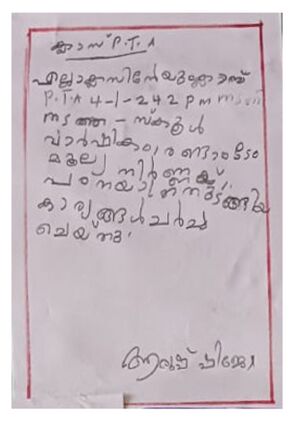 ക്ലാസ് P.T.A
എല്ലാക്ലാസിൻേയും ക്ലാസ്
P.T.A 4-1-24 2 pm ന്
നടത്തി - സ്കൂൾ
വാർഷികം, രണ്ടാംടേം
മൂല്യ നിർണ്ണയ്
പഠനയാത്ര തുടങ്ങിയ
കാര്യങ്ങൾ ചർച്ച
ചെയ്തു.